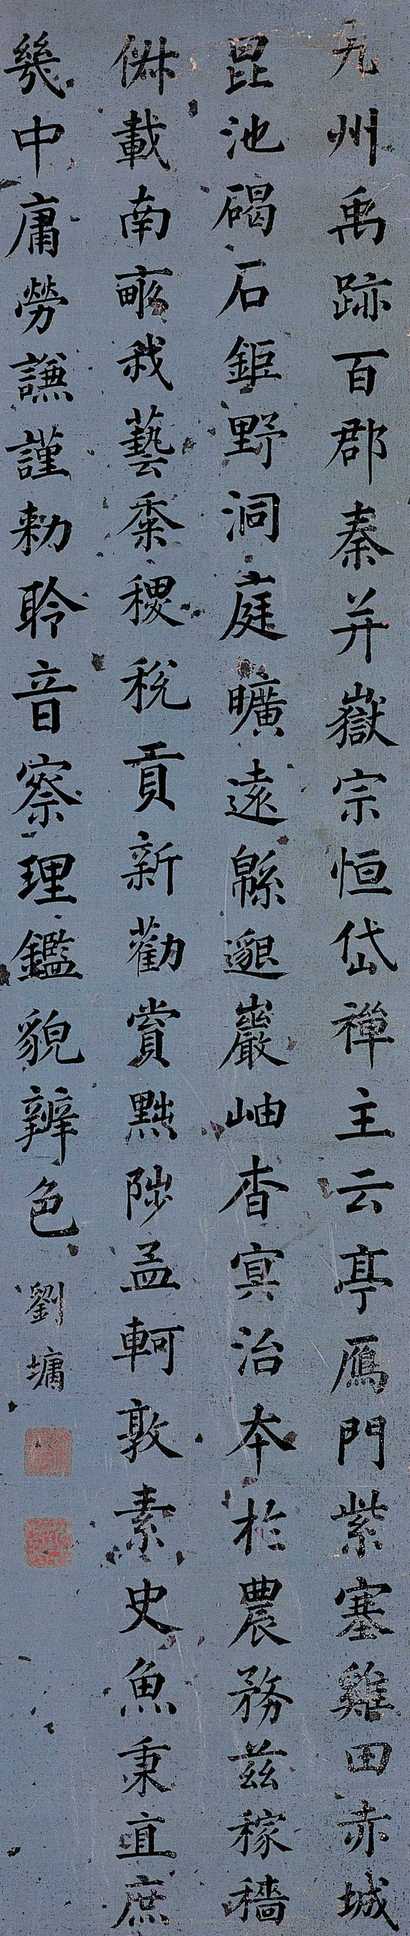 九州禹跡百郡秦并嶽宗恒岱禪主云亭雁門紫塞雞田赤城
昆池碣石鉅野洞庭曠遠緜邈巖岫杳冥治本於農務茲稼穡
俶載南畝我藝黍稷稅貢新勸賞黜陟孟軻敦素史魚秉直庶
幾中庸勞謙謹勅聆音察理鑑貌辨色
劉墉